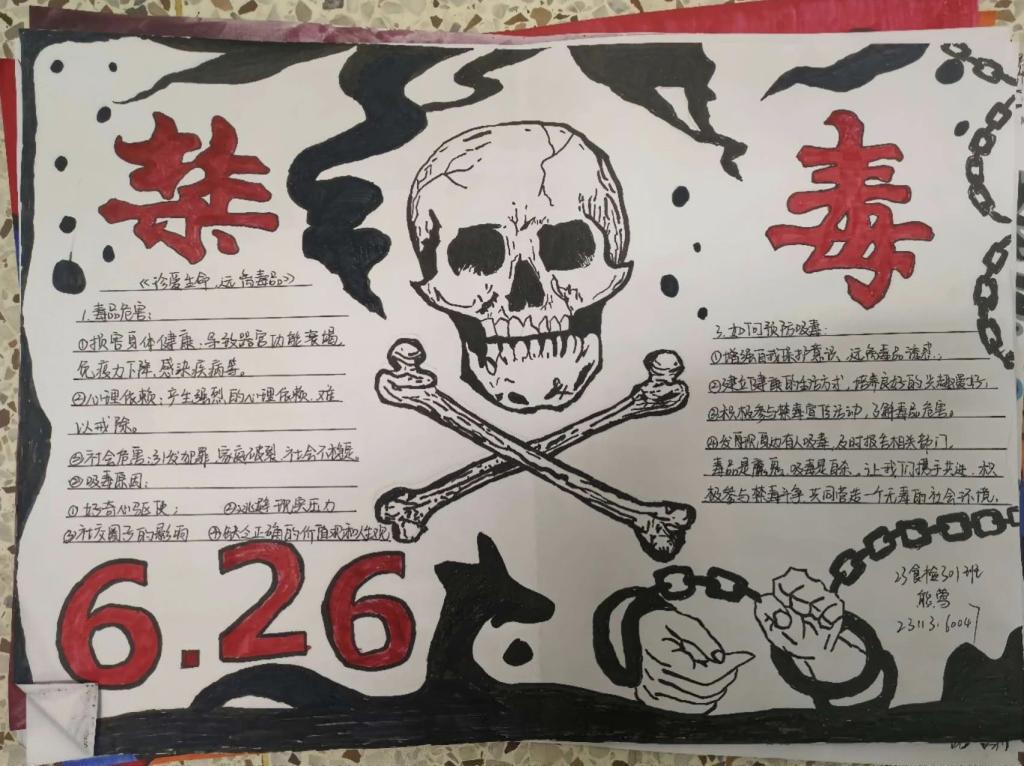 禁毒
《珍爱生命,远离毒品》
1.毒品危害:
①损害身体健康:导致器官功能衰竭,
免疫力下降,感染疾病等。
②心理依赖:产生强烈的心理依赖,难
以戒除。
③社会危害:引发犯罪,家庭破裂,社会不稳定。
②吸毒原因:
①好奇心驱使; ②逃避现实压力
③社交圈子的影响 ④缺乏正确的价值观和人生观
3.如何预防吸毒:
①增强自我保护意识,远离毒品诱惑;
②建立健康的生活方式,培养良好的兴趣爱好;
③积极参与禁毒宣传活动,了解毒品危害。
④发现身边有人吸毒,及时报告相关部门。
毒品是魔鬼,吸毒是自杀,让我们携手共进,积
极参与禁毒斗争,共同营造一个无毒的社会环境。
6.26
23食检301班
熊莺
23113.60047